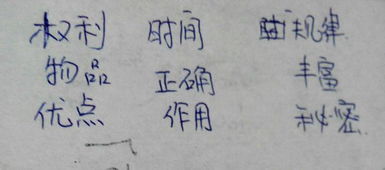 权利 时间 规律
物品 正确 丰富
优点 作用 秘密